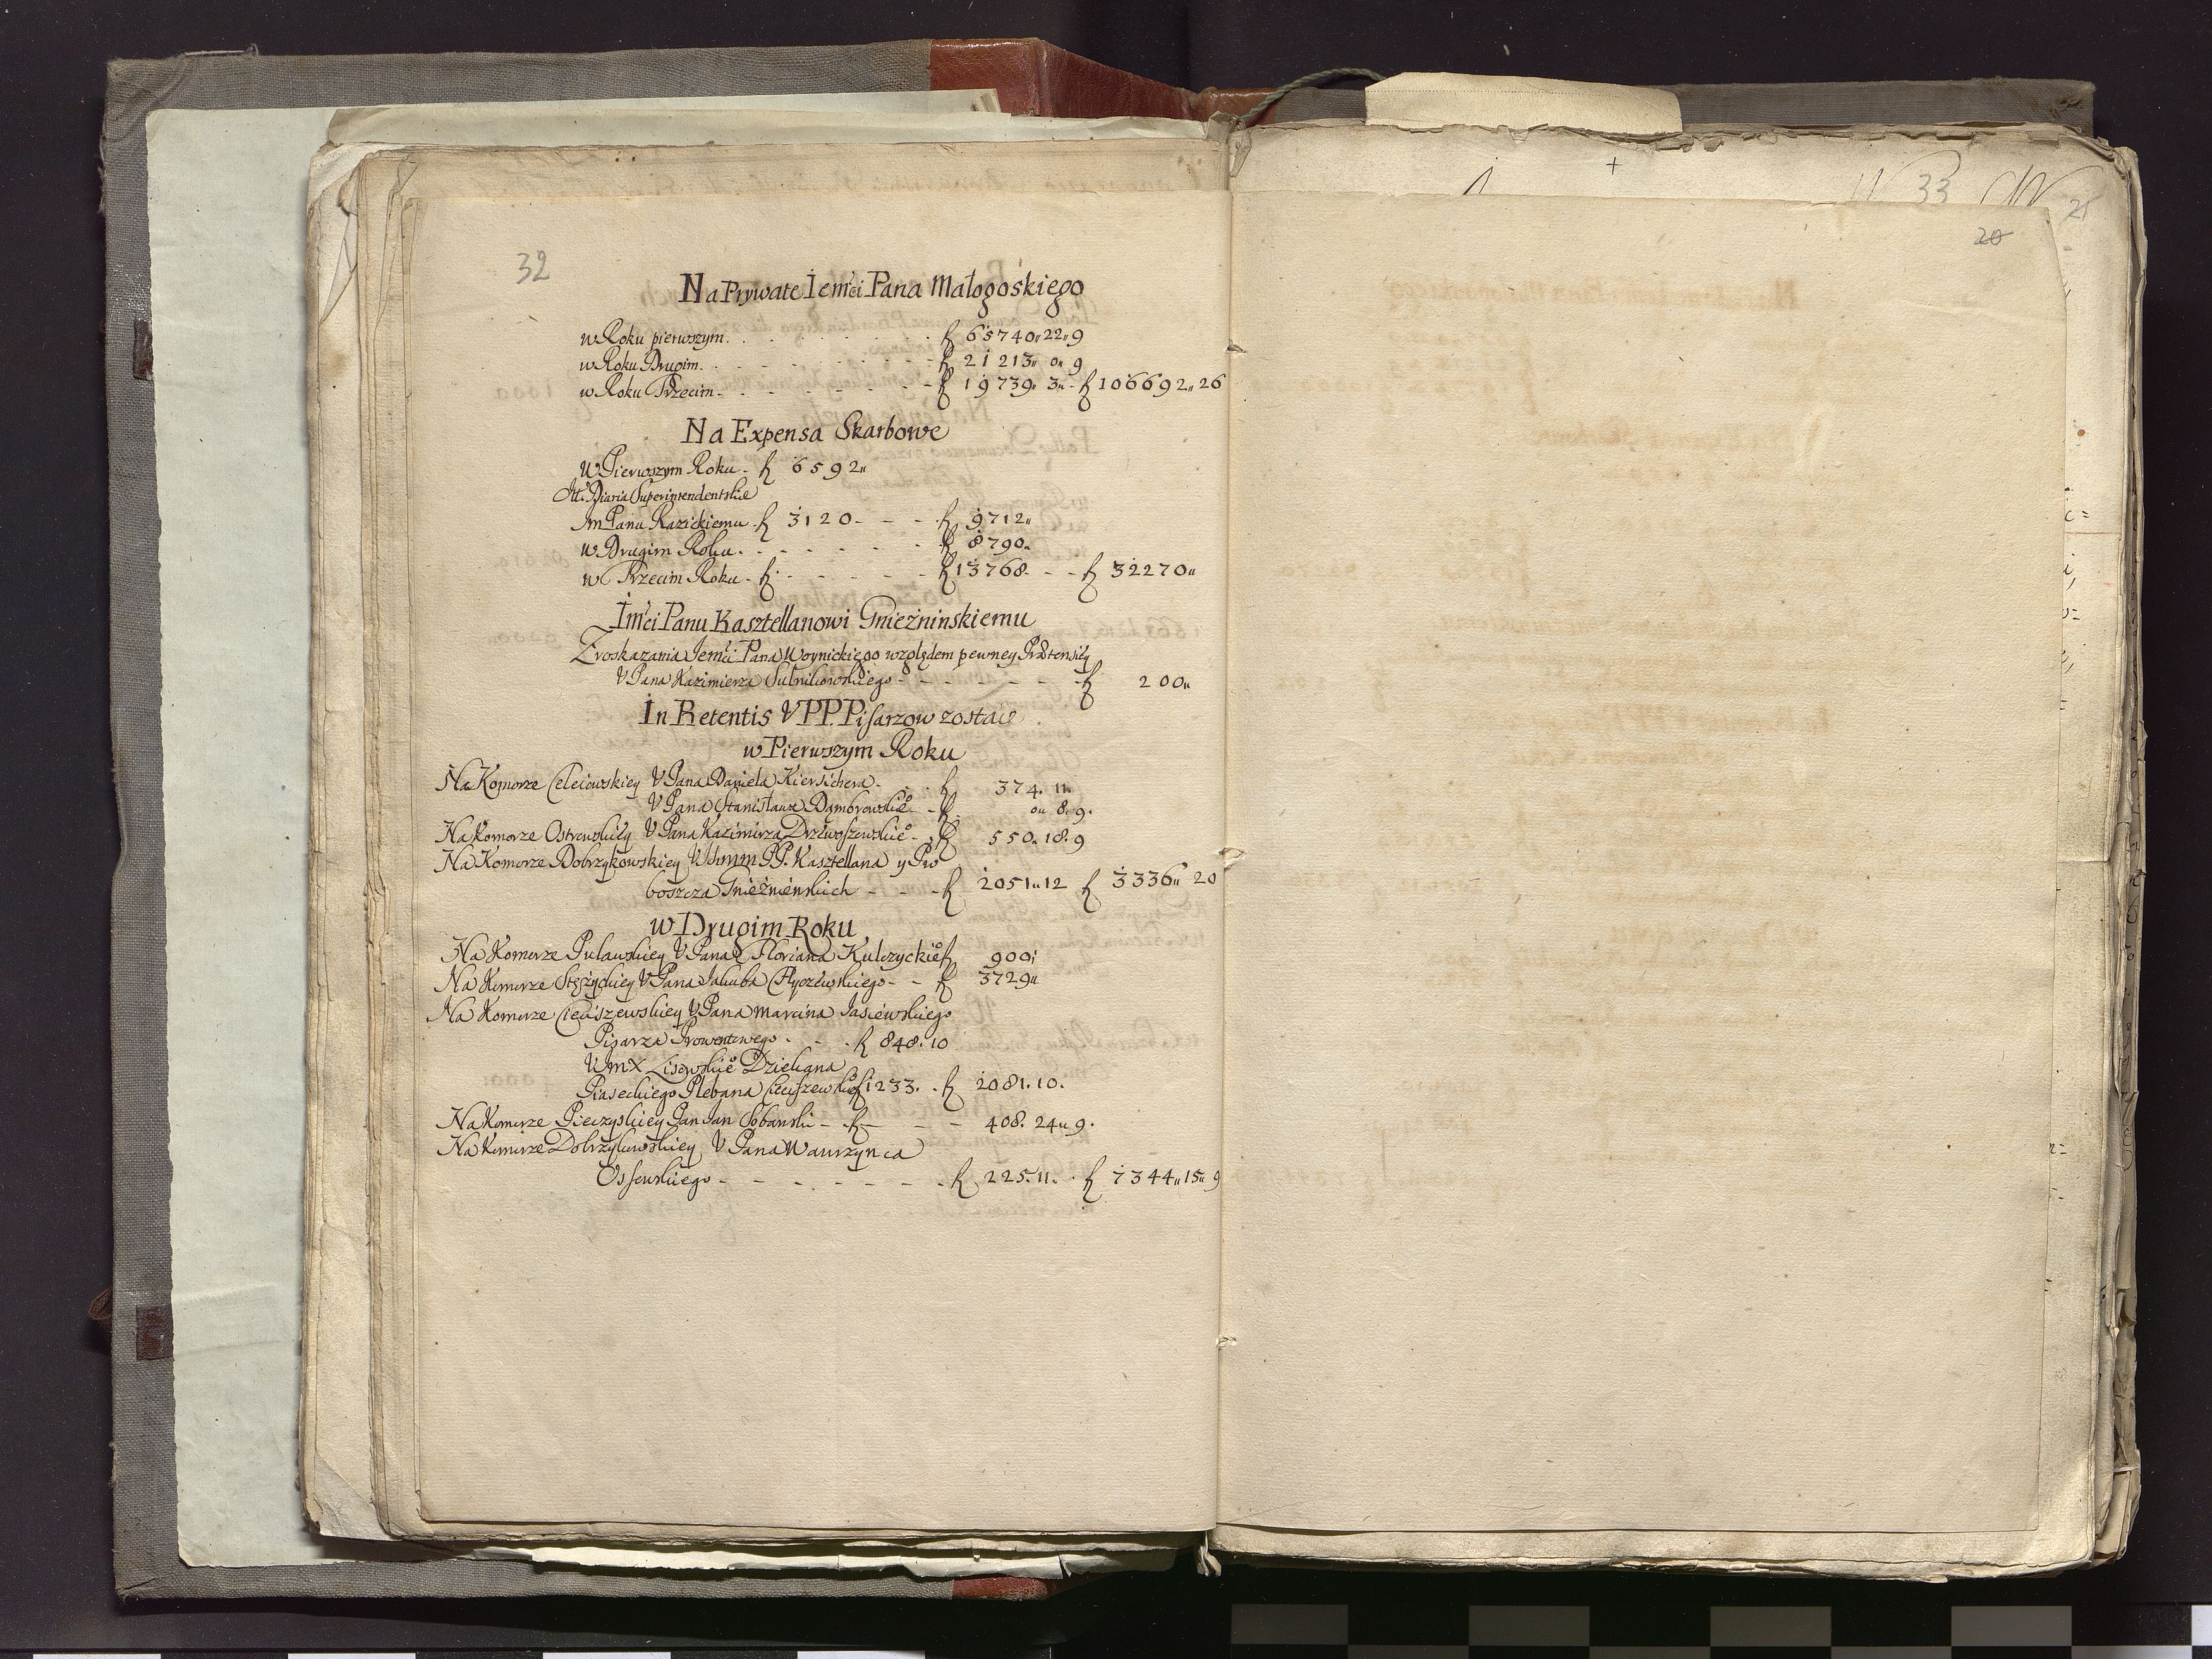 32
Na Prywate Iemci Pana Małogoskiego
w Roku pierwszym. . . . . . . . . f 65740„22„9
w Roku Drugim. . . . . . . . . f 21213„ 0„ 9
w Roku Trzecim. . . . . . . . . f 19739„ 3„ - f 106692„ 26
Na Expensa Skarbowe
W Pierwszym Roku - f 6592„
Itt. Diaria Superintendentskie
Im Panu Razickiemu f 3120 - - - f 9712„
w Drugim Roku. . . . . . . . f 8790„
w Trzecim Roku - f - - - - - - f 13768 - - f 32270„
Imci Panu Kasztellanowi Gnieźninskiemu
Z roskazania Iemci Pana Woynickiego względem pewney Prætensiey
V Pana Kazimierza - - - - - - f 200„
In Retentis V PP. Pisarzow zostaie
w Pierwszym Roku
Na Komorze Celeiowskiey V Pana Daniela Kiersichera - . . f 374. 11.
V Pana Stanisława Dąmbrowskie° - f 0„ 8. 9.
Na Komorze Ostrowskiey V Pana Kazimirza Drzewoszewskie° - f 550. 18. 9
Na Komorze Dobrzykowskiey V Ichmm PP. Kasztellana y Pro
boszcza Gnieźnienskich - - - f 2051„12 f 3336„ 20
w Drugim Roku
Na Komorze Puławskiey V Pana Floriana Kulczyckie° f 900„
Na Komorze Stężyckiey V Pana Iakuba - - f 3729„
Na Komorze Cieciszewskiey V Pana Marcina Iasiewskiego
Pisarza Prowentowego - - . f 848. 10
V mX Lisowskie° Dziekana
Piaseckiego Plebana Cieciszewskie° f 1233. . f 2081. 10.
Na Komorze Pieczyskiey Pan Ian Sobanski - f - - - 408. 24„ 9.
Na Komorze Dobrzykowskiey V Pana Wawrzynca
Ossowskiego - - - - - - - - f 225. 11. . f 7344„15„ 9
33
21
20